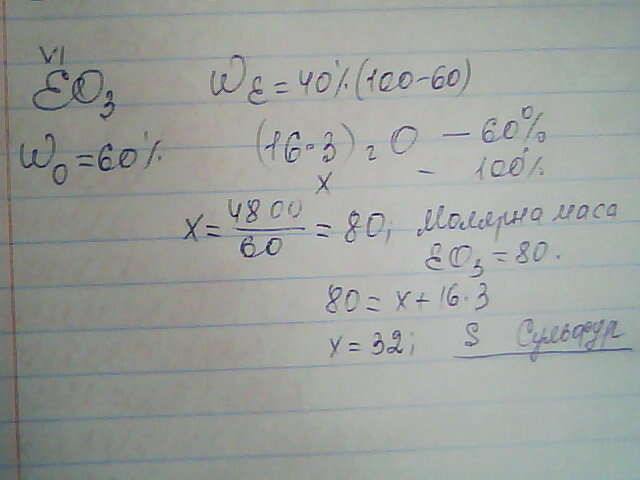 VI
EO₃ W_E = 40% (100-60)
W_O = 60% (16·3) г O — 60%
x — 100%
x = 4800/60 = 80; Молярна маса
EO₃ = 80.
80 = x + 16·3
x = 32; S Сульфур